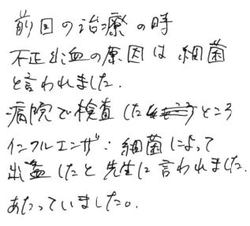 前回の治療の時
不正出血の原因は細菌
と言われました.
病院で検査したところ
インフルエンザ:細菌によって
出血したと先生に言われました.
あたっていました。